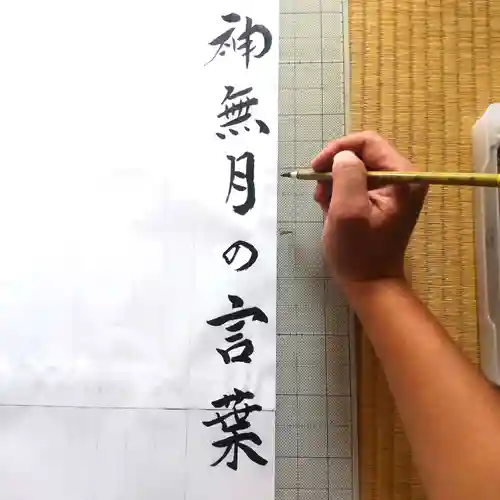 神無月の言葉